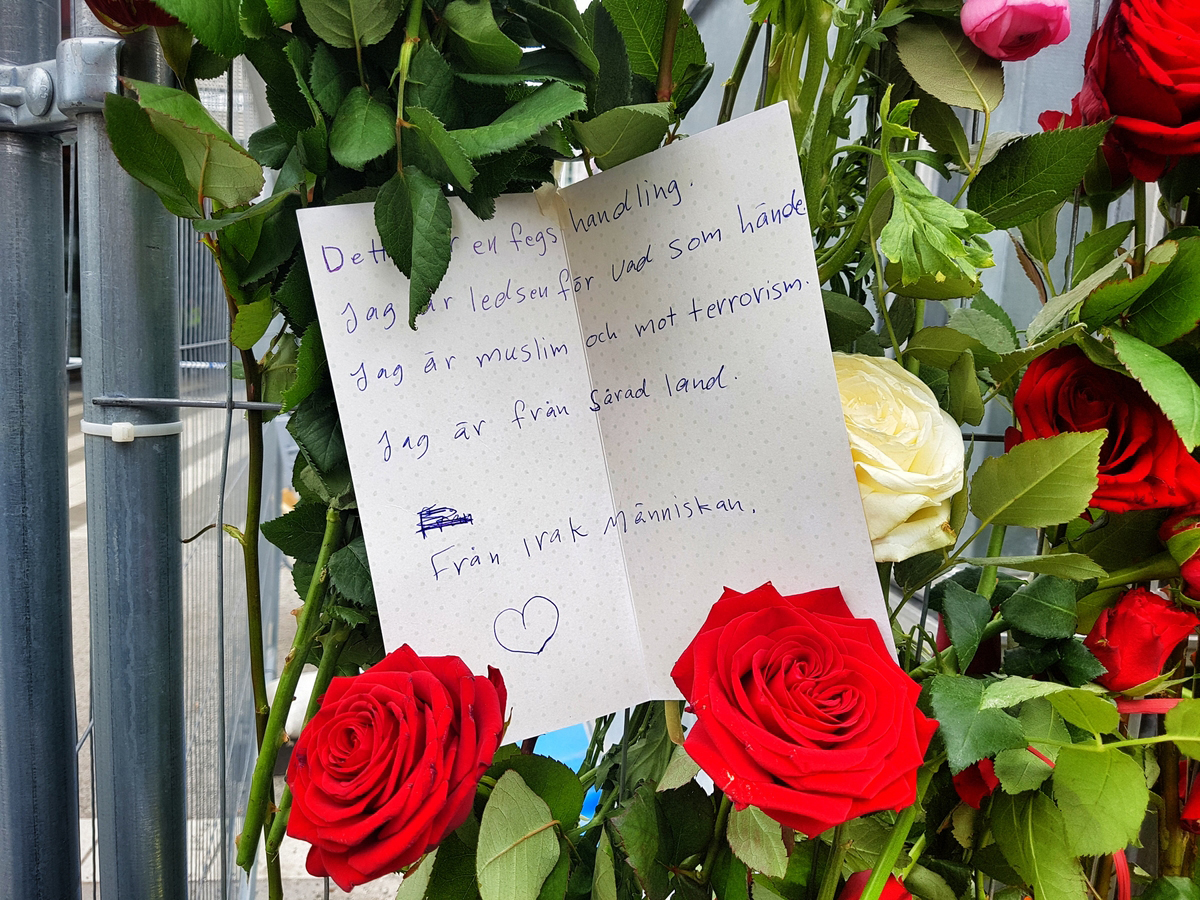 Dett r en fegs handling.
Jag är ledsen för vad som hände
Jag är muslim och mot terrorism.
Jag är från Sårad land.
Från Irak Människan.